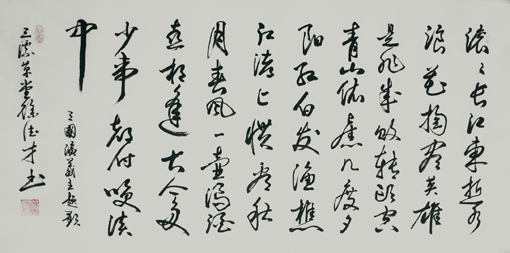 滚滚长江東逝水
浪花掏尽英雄
是非成敗轉頭空
青山依舊几度夕
阳红白发渔樵
江渚上惯看秋
月春风一壶濁酒
喜相逢古今多
少事都付笑谈
中
三國演義主题歌
草堂徐德才书